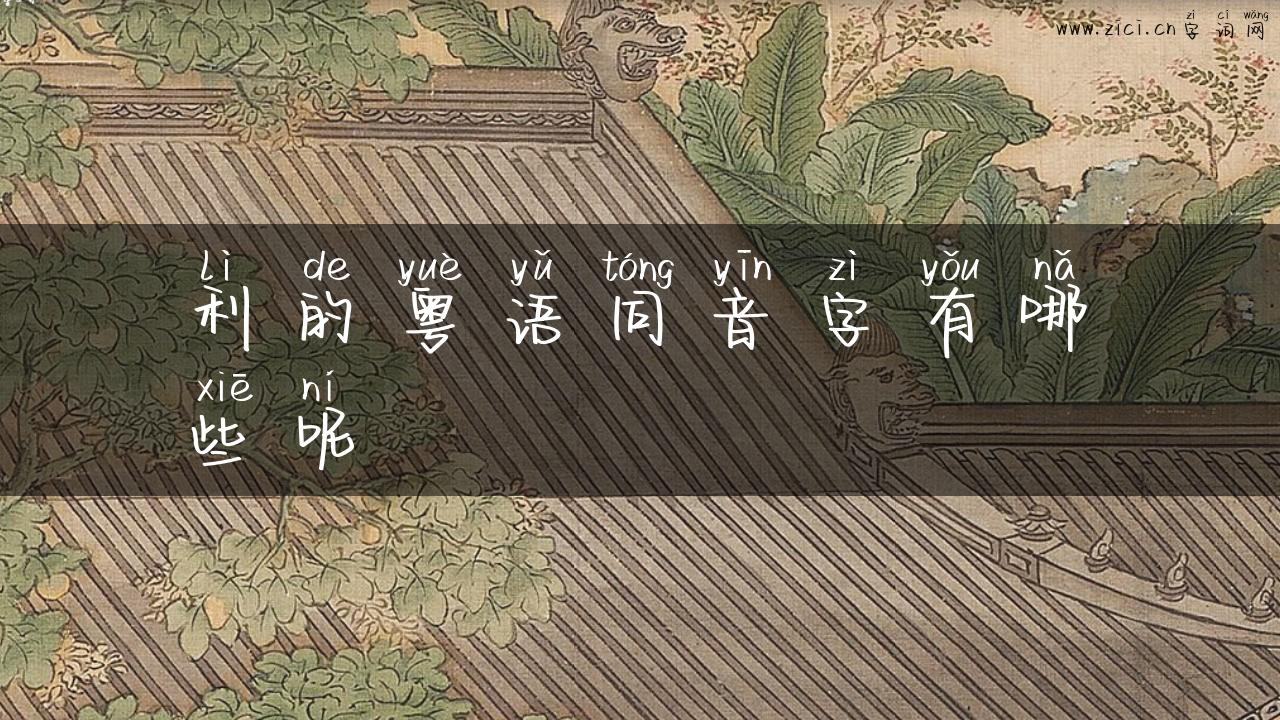 zì cí wǎng
www.zici.cn 字词网
lì de yuè yǔ tóng yīn zì yǒu nǎ
利的粤语同音字有哪
xiē ní
些呢